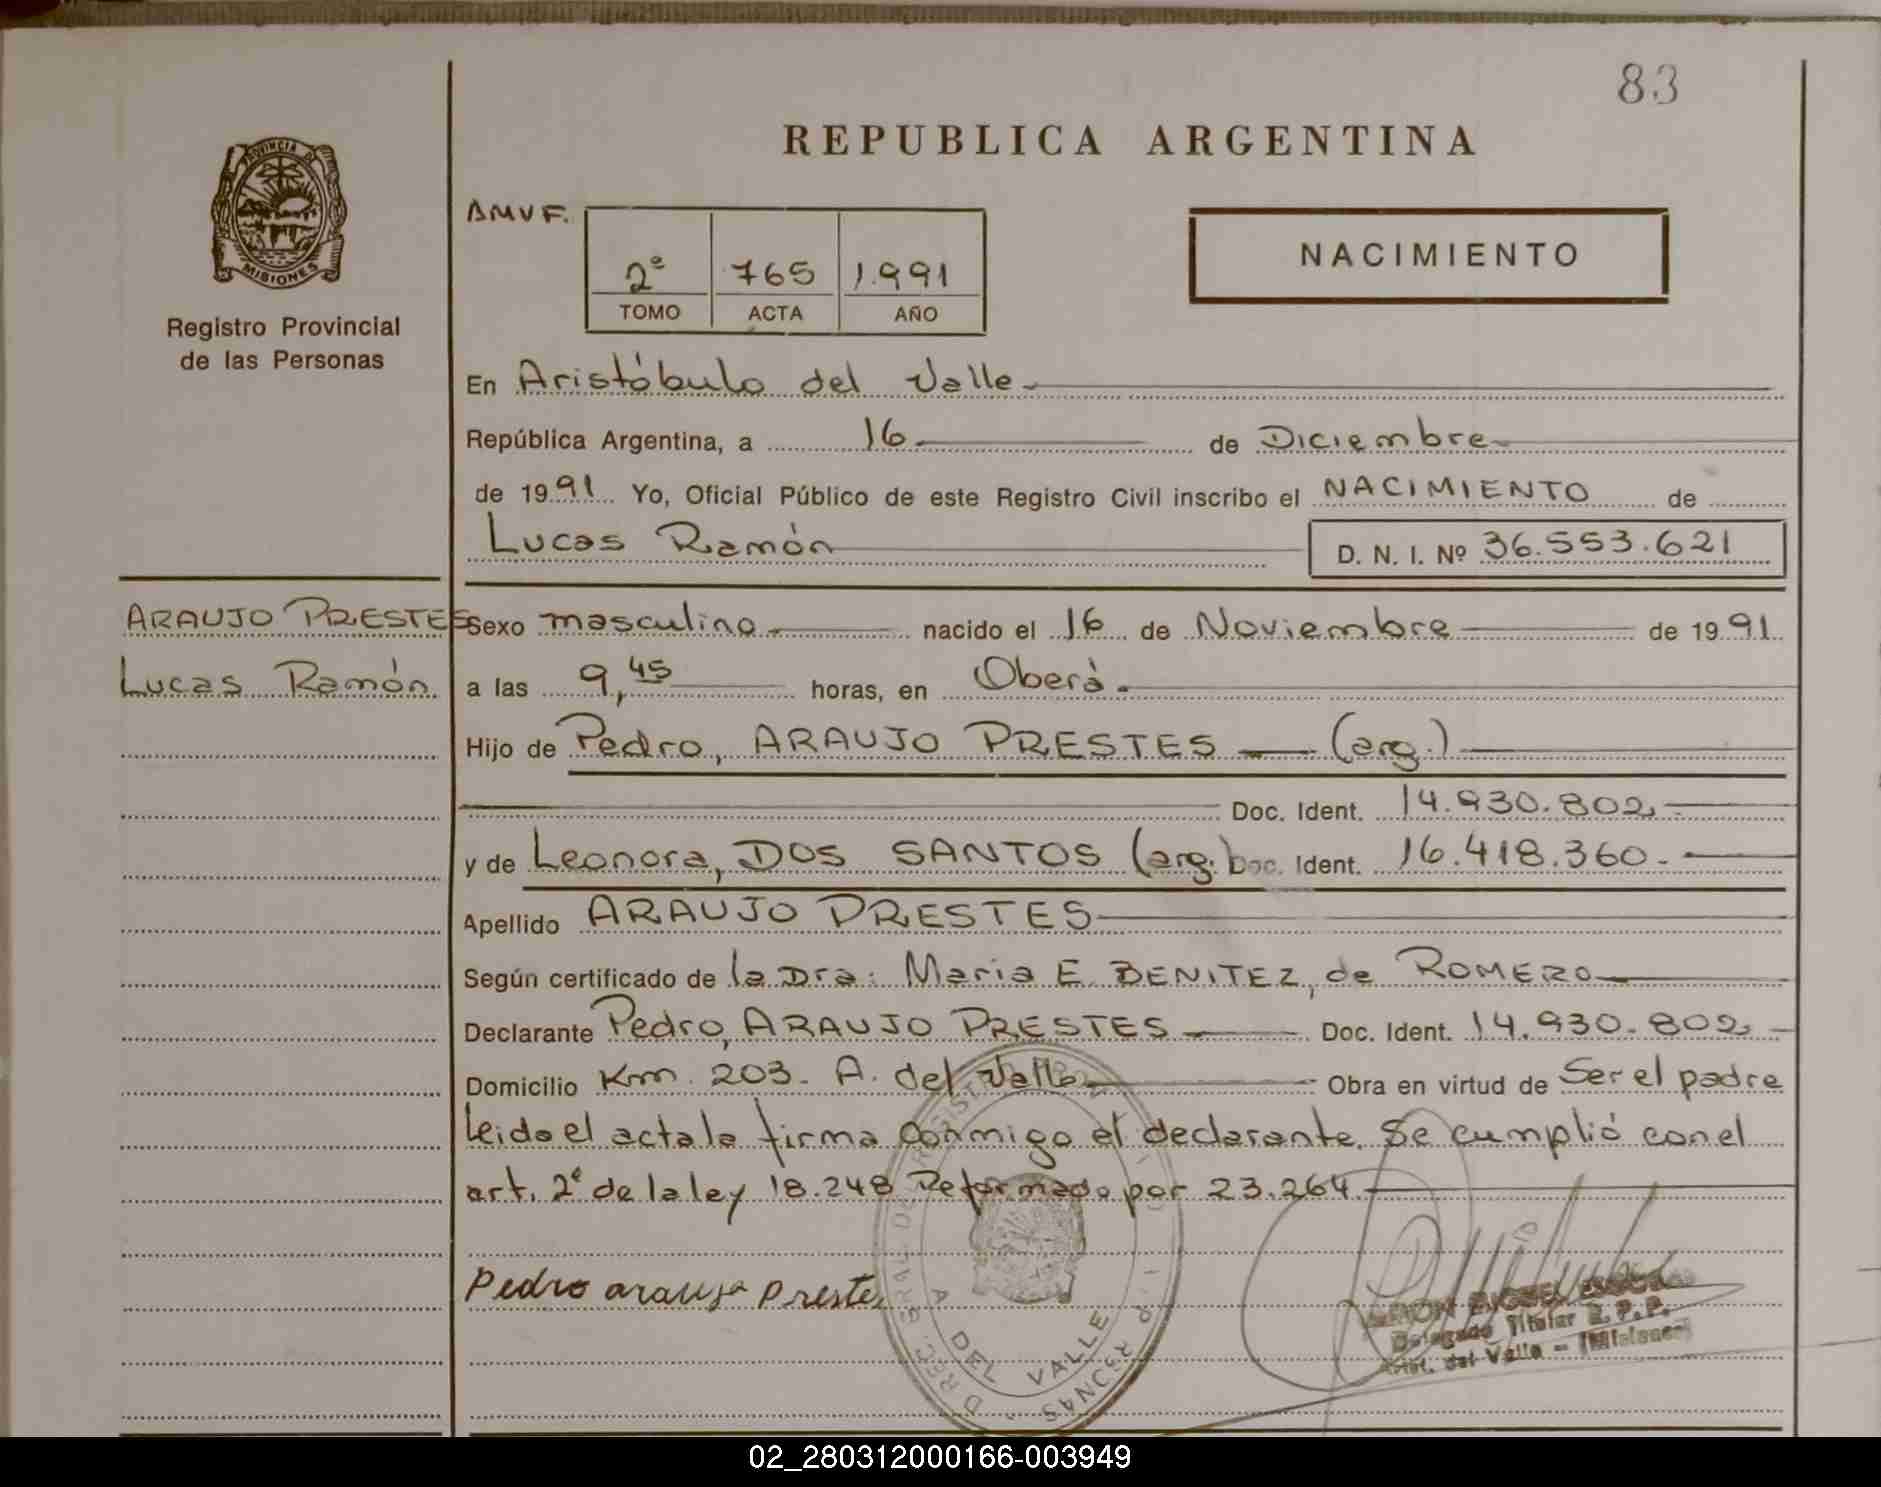 83
REPUBLICA ARGENTINA
PROVINCIA DE
MISIONES
Registro Provincial
de las Personas
AMVF.
2º 765 1.991
TOMO ACTA AÑO
NACIMIENTO
En Aristóbulo del Valle
República Argentina, a 16 de Diciembre
de 1991 Yo, Oficial Público de este Registro Civil inscribo el NACIMIENTO de
Lucas Ramón D. N. I. Nº 36.553.621
ARAUJO PRESTES
Lucas Ramón
Sexo masculino nacido el 16 de Noviembre de 1991
a las 9,45 horas, en Oberá.
Hijo de Pedro, ARAUJO PRESTES (arg.)
Doc. Ident. 14.930.802
y de Leonora, DOS SANTOS (arg.) Doc. Ident. 16.418.360.
Apellido ARAUJO PRESTES
Según certificado de la Dra: Maria E. BENITEZ, de ROMERO
Declarante Pedro, ARAUJO PRESTES Doc. Ident. 14.930.802
Domicilio Km. 203. A. del Valle Obra en virtud de Ser el padre
leido el acta la firma conmigo el declarante. Se cumplió con el
art. 2º de la ley 18.248 Reformado por 23.264
Pedro arauja prestes
A. DEL VALLE
Delegado Titular R.P.P.
Arist. del Valle - (Misiones)
02_280312000166-003949